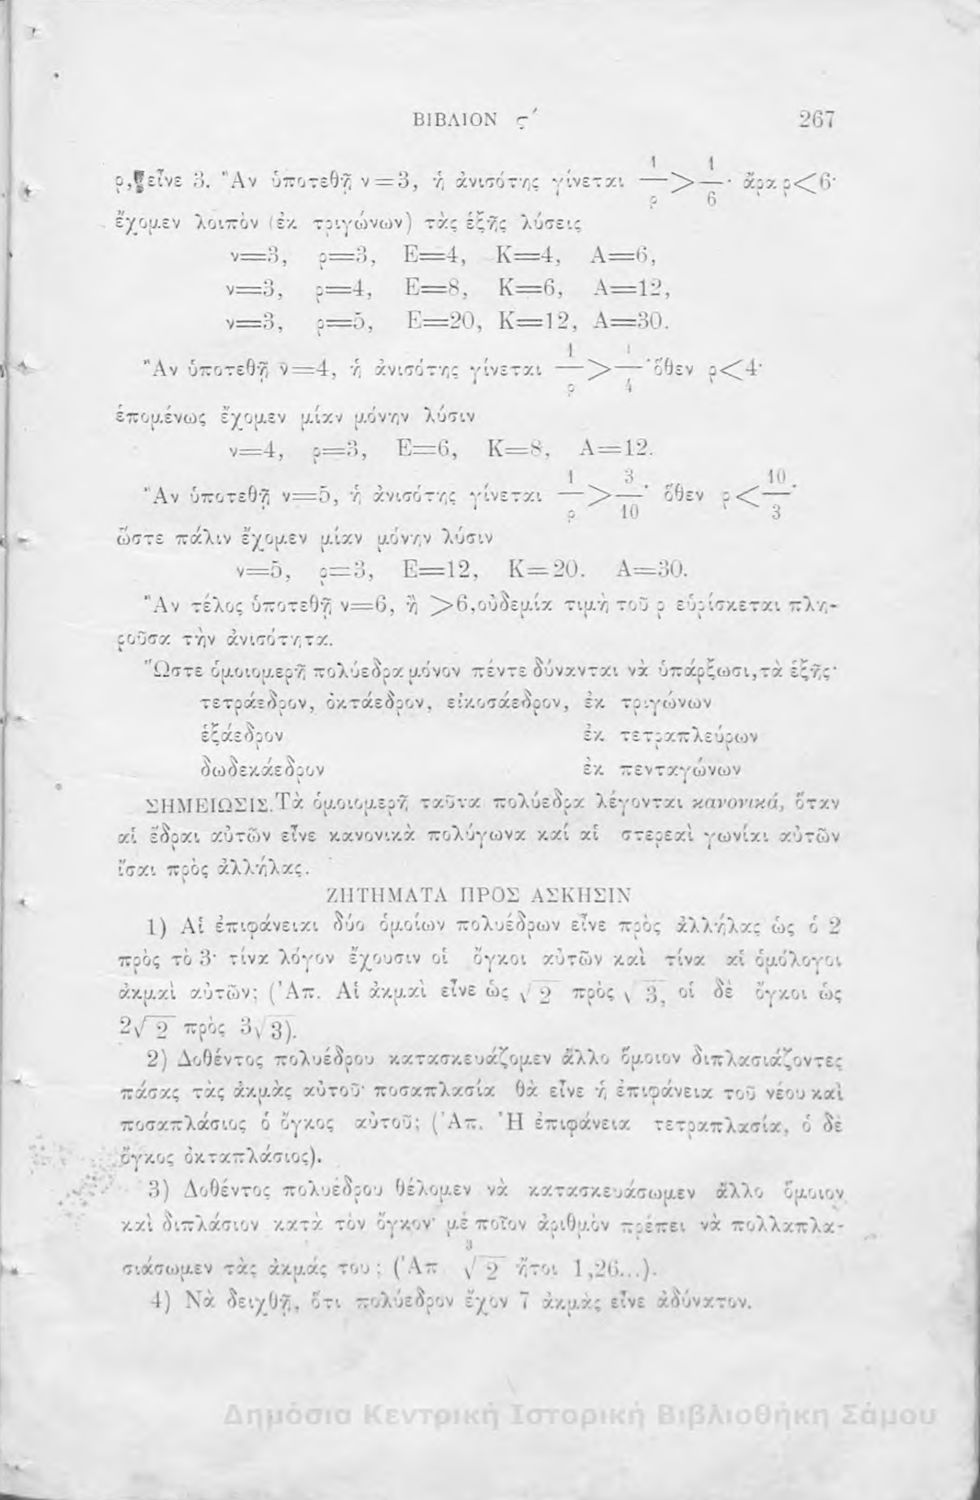 ΒΙΒΛΙΟΝ ς΄ 267
ρ, εἶνε 3. Ἂν ὑποτεθῇ ν=3, ἡ ἀνισότης γίνεται 1/ρ > 1/6· ἄρα ρ<6·
ἔχομεν λοιπὸν (ἐκ τριγώνων) τὰς ἑξῆς λύσεις
ν=3, ρ=3, Ε=4, Κ=4, Α=6,
ν=3, ρ=4, Ε=8, Κ=6, Α=12,
ν=3, ρ=5, Ε=20, Κ=12, Α=30.
Ἂν ὑποτεθῇ ν=4, ἡ ἀνισότης γίνεται 1/ρ > 1/4· ὅθεν ρ<4·
ἑπομένως ἔχομεν μίαν μόνην λύσιν
ν=4, ρ=3, Ε=6, Κ=8, Α=12.
Ἂν ὑποτεθῇ ν=5, ἡ ἀνισότης γίνεται 1/ρ > 3/10· ὅθεν ρ < 10/3·
ὥστε πάλιν ἔχομεν μίαν μόνην λύσιν
ν=5, ρ=3, Ε=12, Κ=20. Α=30.
Ἂν τέλος ὑποτεθῇ ν=6, ἢ >6, οὐδεμία τιμὴ τοῦ ρ εὑρίσκεται πλη-
ροῦσα τὴν ἀνισότητα.
Ὥστε ὁμοιομερῆ πολύεδρα μόνον πέντε δύνανται νὰ ὑπάρξωσι, τὰ ἑξῆς·
τετράεδρον, ὀκτάεδρον, εἰκοσάεδρον, ἐκ τριγώνων
ἑξάεδρον ἐκ τετραπλεύρων
δωδεκάεδρον ἐκ πενταγώνων
ΣΗΜΕΙΩΣΙΣ. Τὰ ὁμοιομερῆ ταῦτα πολύεδρα λέγονται κανονικά, ὅταν
αἱ ἕδραι αὐτῶν εἶνε κανονικὰ πολύγωνα καί αἱ στερεαὶ γωνίαι αὐτῶν
ἴσαι πρὸς ἀλλήλας.
ΖΗΤΗΜΑΤΑ ΠΡΟΣ ΑΣΚΗΣΙΝ
1) Αἱ ἐπιφάνειαι δύο ὁμοίων πολυέδρων εἶνε πρὸς ἀλλήλας ὡς ὁ 2
πρὸς τὸ 3· τίνα λόγον ἔχουσιν οἱ ὄγκοι αὐτῶν καὶ τίνα αἱ ὁμόλογοι
ἀκμαὶ αὐτῶν; (Ἀπ. Αἱ ἀκμαὶ εἶνε ὡς √2 πρὸς √3, οἱ δὲ ὄγκοι ὡς
2√2 πρὸς 3√3).
2) Δοθέντος πολυέδρου κατασκευάζομεν ἄλλο ὅμοιον διπλασιάζοντες
πάσας τὰς ἀκμὰς αὐτοῦ· ποσαπλασία θὰ εἶνε ἡ ἐπιφάνεια τοῦ νέου καὶ
ποσαπλάσιος ὁ ὄγκος αὐτοῦ; (Ἀπ. Ἡ ἐπιφάνεια τετραπλασία, ὁ δὲ
ὄγκος ὀκταπλάσιος).
3) Δοθέντος πολυέδρου θέλομεν νὰ κατασκευάσωμεν ἄλλο ὅμοιον
καὶ διπλάσιον κατὰ τὸν ὄγκον· μὲ ποῖον ἀριθμὸν πρέπει νὰ πολλαπλα-
σιάσωμεν τὰς ἀκμάς του; (Ἀπ ∛2 ἤτοι 1,26...).
4) Νὰ δειχθῇ, ὅτι πολύεδρον ἔχον 7 ἀκμὰς εἶνε ἀδύνατον.
Δημόσια Κεντρική Ιστορική Βιβλιοθήκη Σάμου